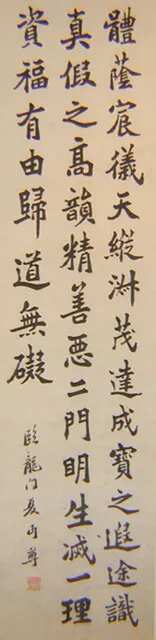 體蔭宸儀天縱淋茂達成寶之遐途識
真假之高韻精善惡二門明生滅一理
資福有由歸道無礙
臨龍門夏可尊